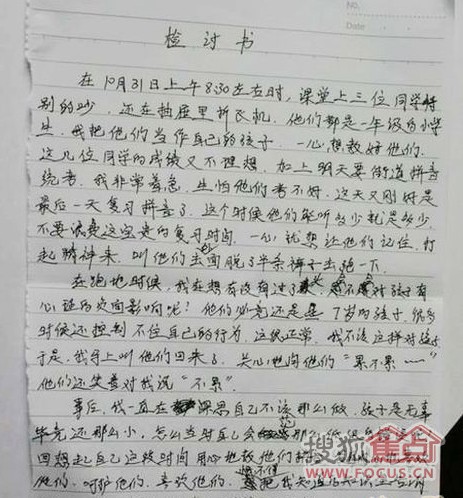 NO.
Date:
检讨书
在10月31日上午8:30左右时，课堂上三位同学特
别的吵，还在抽屉里折飞机，他们都是一年级的小学
生，我把他们当作自己的孩子，一心想教好他们，
这几位同学的成绩又不理想，加上明天要街道拼音
统考，我非常着急，生怕他们考不好，这天又刚好是
最后一天复习拼音了，这个时候他们能听多少就是多少，
不要浪费这宝贵的复习时间，一心就想让他们记住，打
起精神来，叫他们去面脱了半条裤子去跑一下，
在跑地时候，我在想有没有过了，对孩子有
心理的负面影响呢？他们必竟还是7岁的孩子，很多
时候还控制不住自己的行为，这很正常，我不该这样对孩子
于是，我马上叫他们回来了，关心地问他们“累不累……”
他们还笑着对我说“不累”。
事后，我一直在深思自己不该那么做，孩子是无辜
毕竟还那么小，怎么当时自己会那
回想起自己这段时间用心地教他们
他们，呵护他们，喜欢他们，
搜狐焦点
WWW.FOCUS.CN